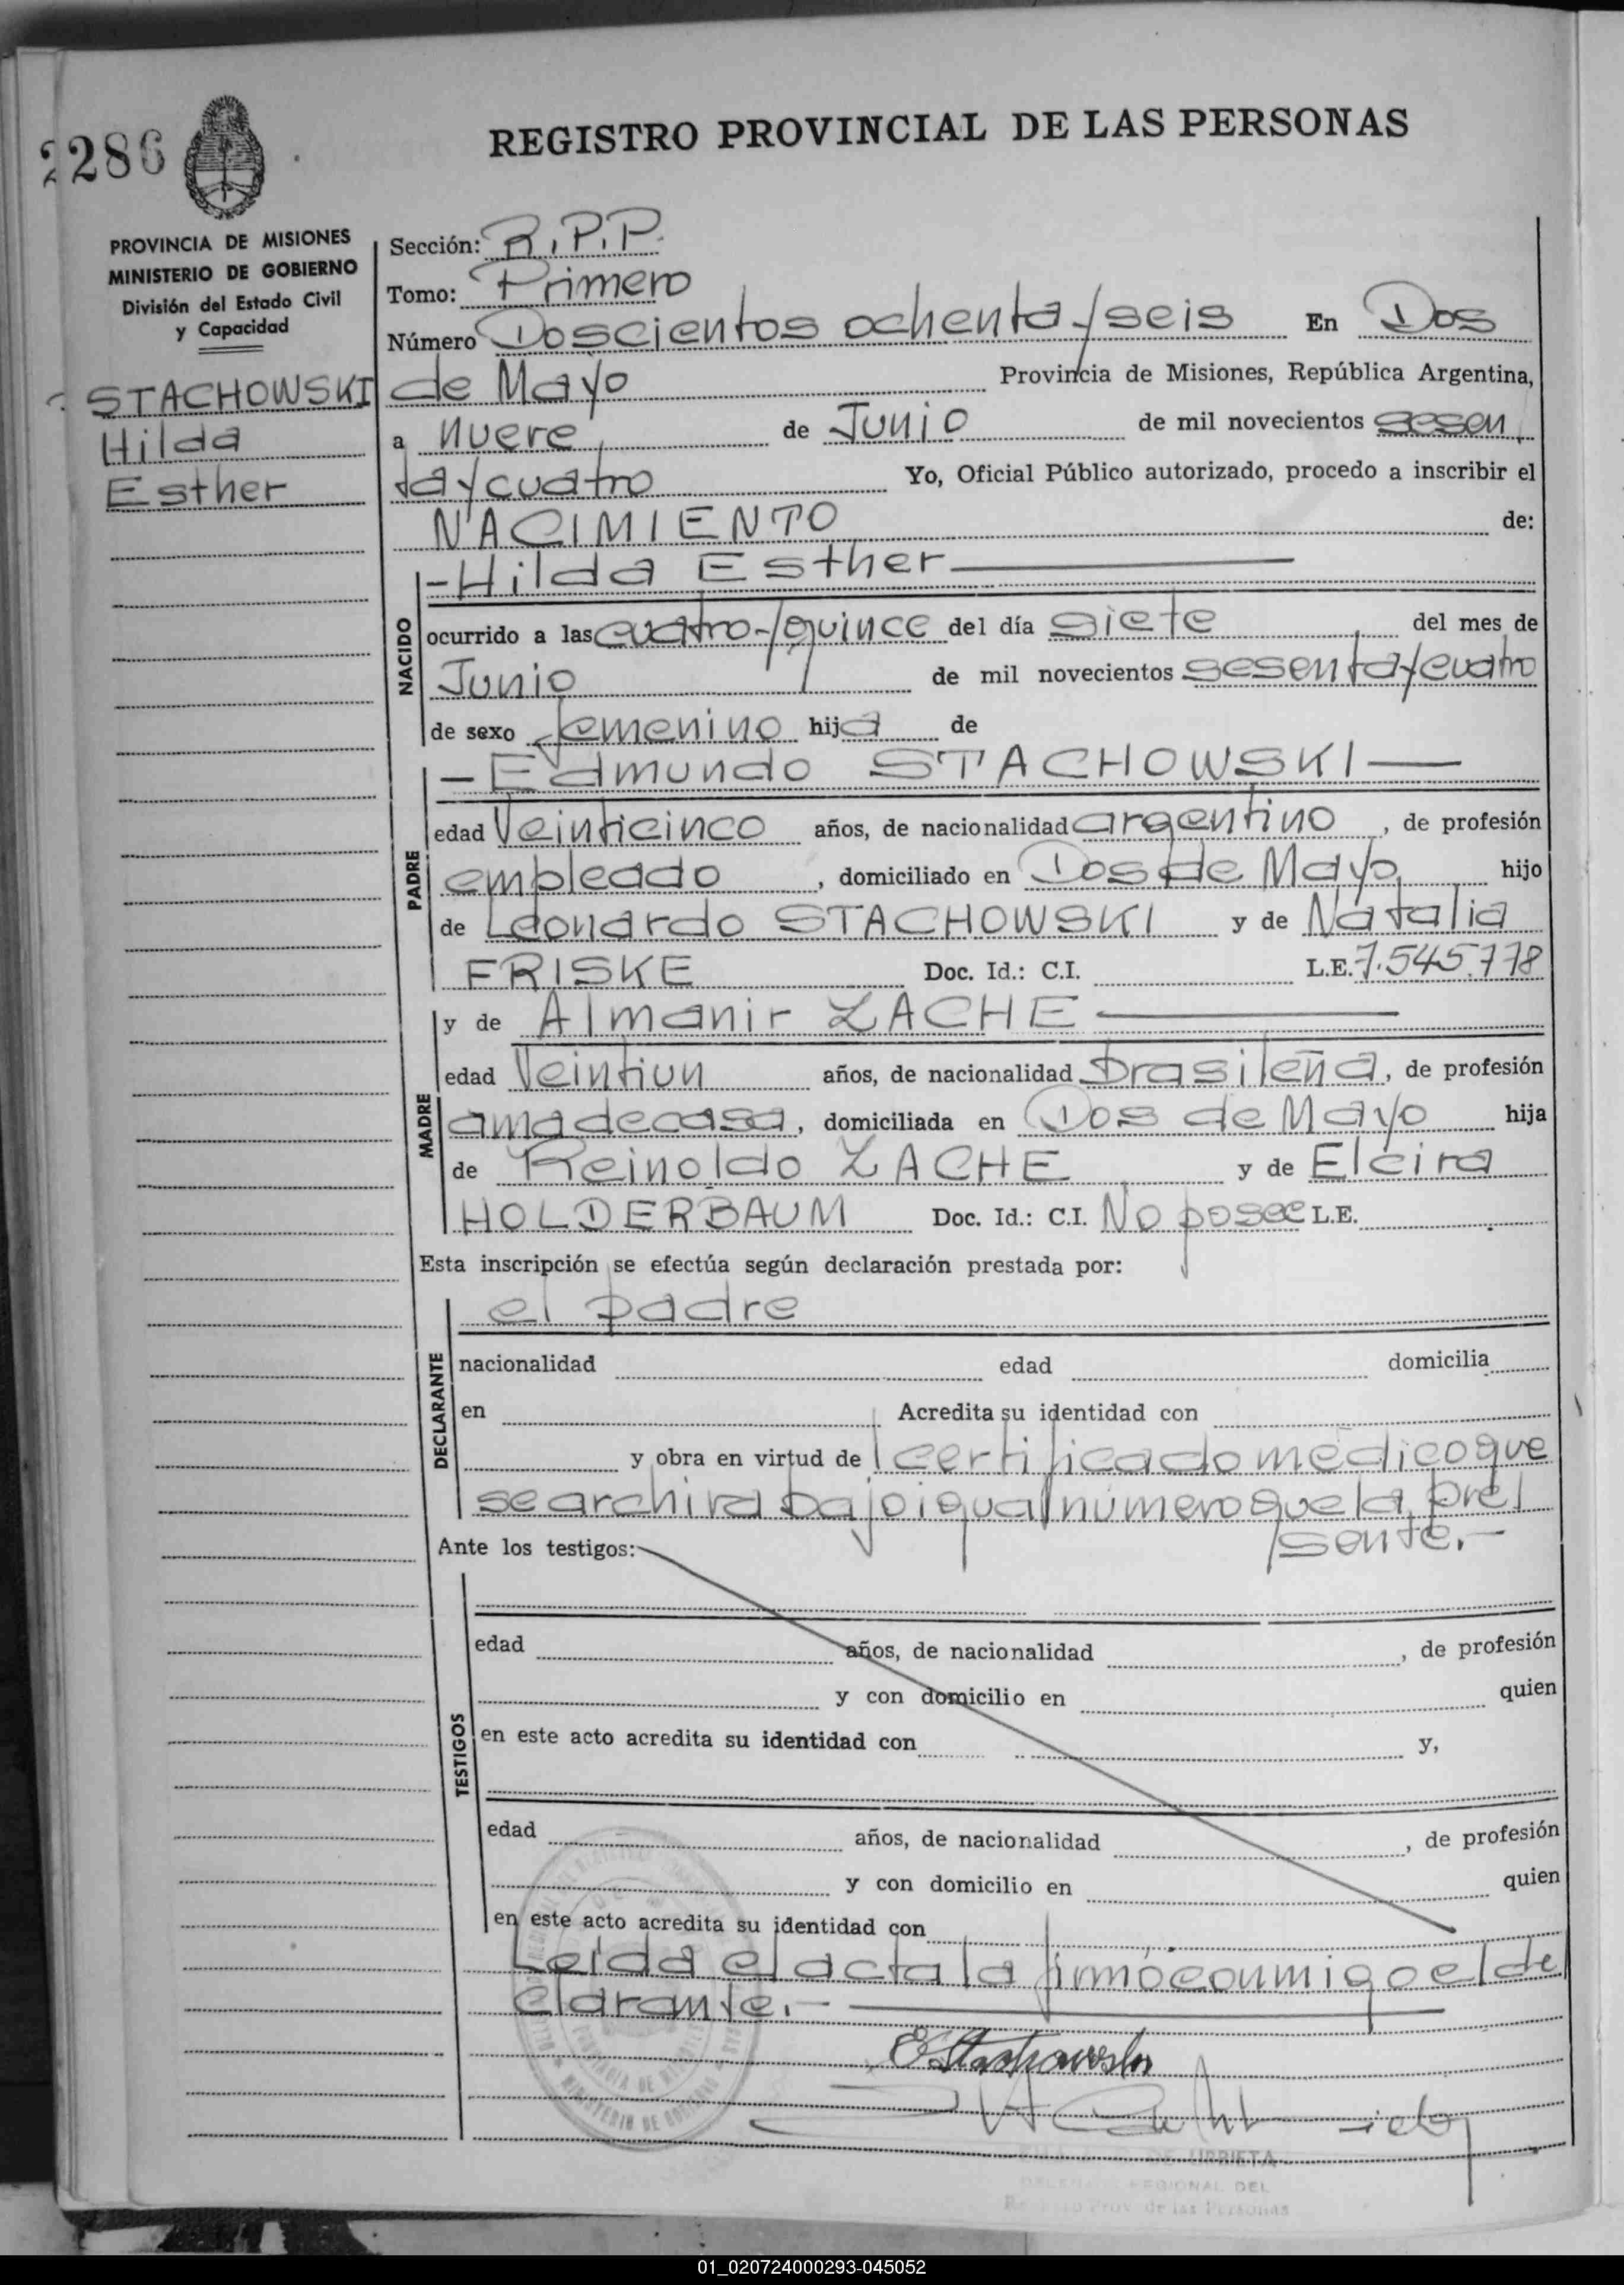 286
REGISTRO PROVINCIAL DE LAS PERSONAS
PROVINCIA DE MISIONES
MINISTERIO DE GOBIERNO
División del Estado Civil
y Capacidad
STACHOWSKI
Hilda
Esther
Sección: R.P.P.
Tomo: Primero
Número Doscientos ochenta y seis En Dos
de Mayo Provincia de Misiones, República Argentina,
a nueve de Junio de mil novecientos sesen
ta y cuatro Yo, Oficial Público autorizado, procedo a inscribir el
NACIMIENTO de:
-Hilda Esther
NACIDO
ocurrido a las cuatro y quince del día siete del mes de
Junio de mil novecientos sesenta y cuatro
de sexo femenino hija de
- Edmundo STACHOWSKI
PADRE
edad Veinticinco años, de nacionalidad argentino, de profesión
empleado, domiciliado en Dos de Mayo hijo
de Leonardo STACHOWSKI y de Natalia
FRISKE Doc. Id.: C.I. L.E. 7.545.778
y de Almanir ZACHE
MADRE
edad Veintiun años, de nacionalidad brasileña, de profesión
ama de casa, domiciliada en Dos de Mayo hija
de Reinoldo ZACHE y de Elcira
HOLDERBAUM Doc. Id.: C.I. No posee L.E.
Esta inscripción se efectúa según declaración prestada por:
el padre
DECLARANTE
nacionalidad edad domicilia
en Acredita su identidad con
y obra en virtud de certificado médico que
se archiva bajo igual número que la pre
sente.-
Ante los testigos:
TESTIGOS
edad años, de nacionalidad , de profesión
y con domicilio en quien
en este acto acredita su identidad con y,
edad años, de nacionalidad , de profesión
y con domicilio en quien
en este acto acredita su identidad con
Leída el acta la firmó conmigo el de
clarante.-
DE URRIETA
REGIONAL DEL
Prov. de las Personas
01_020724000293-045052